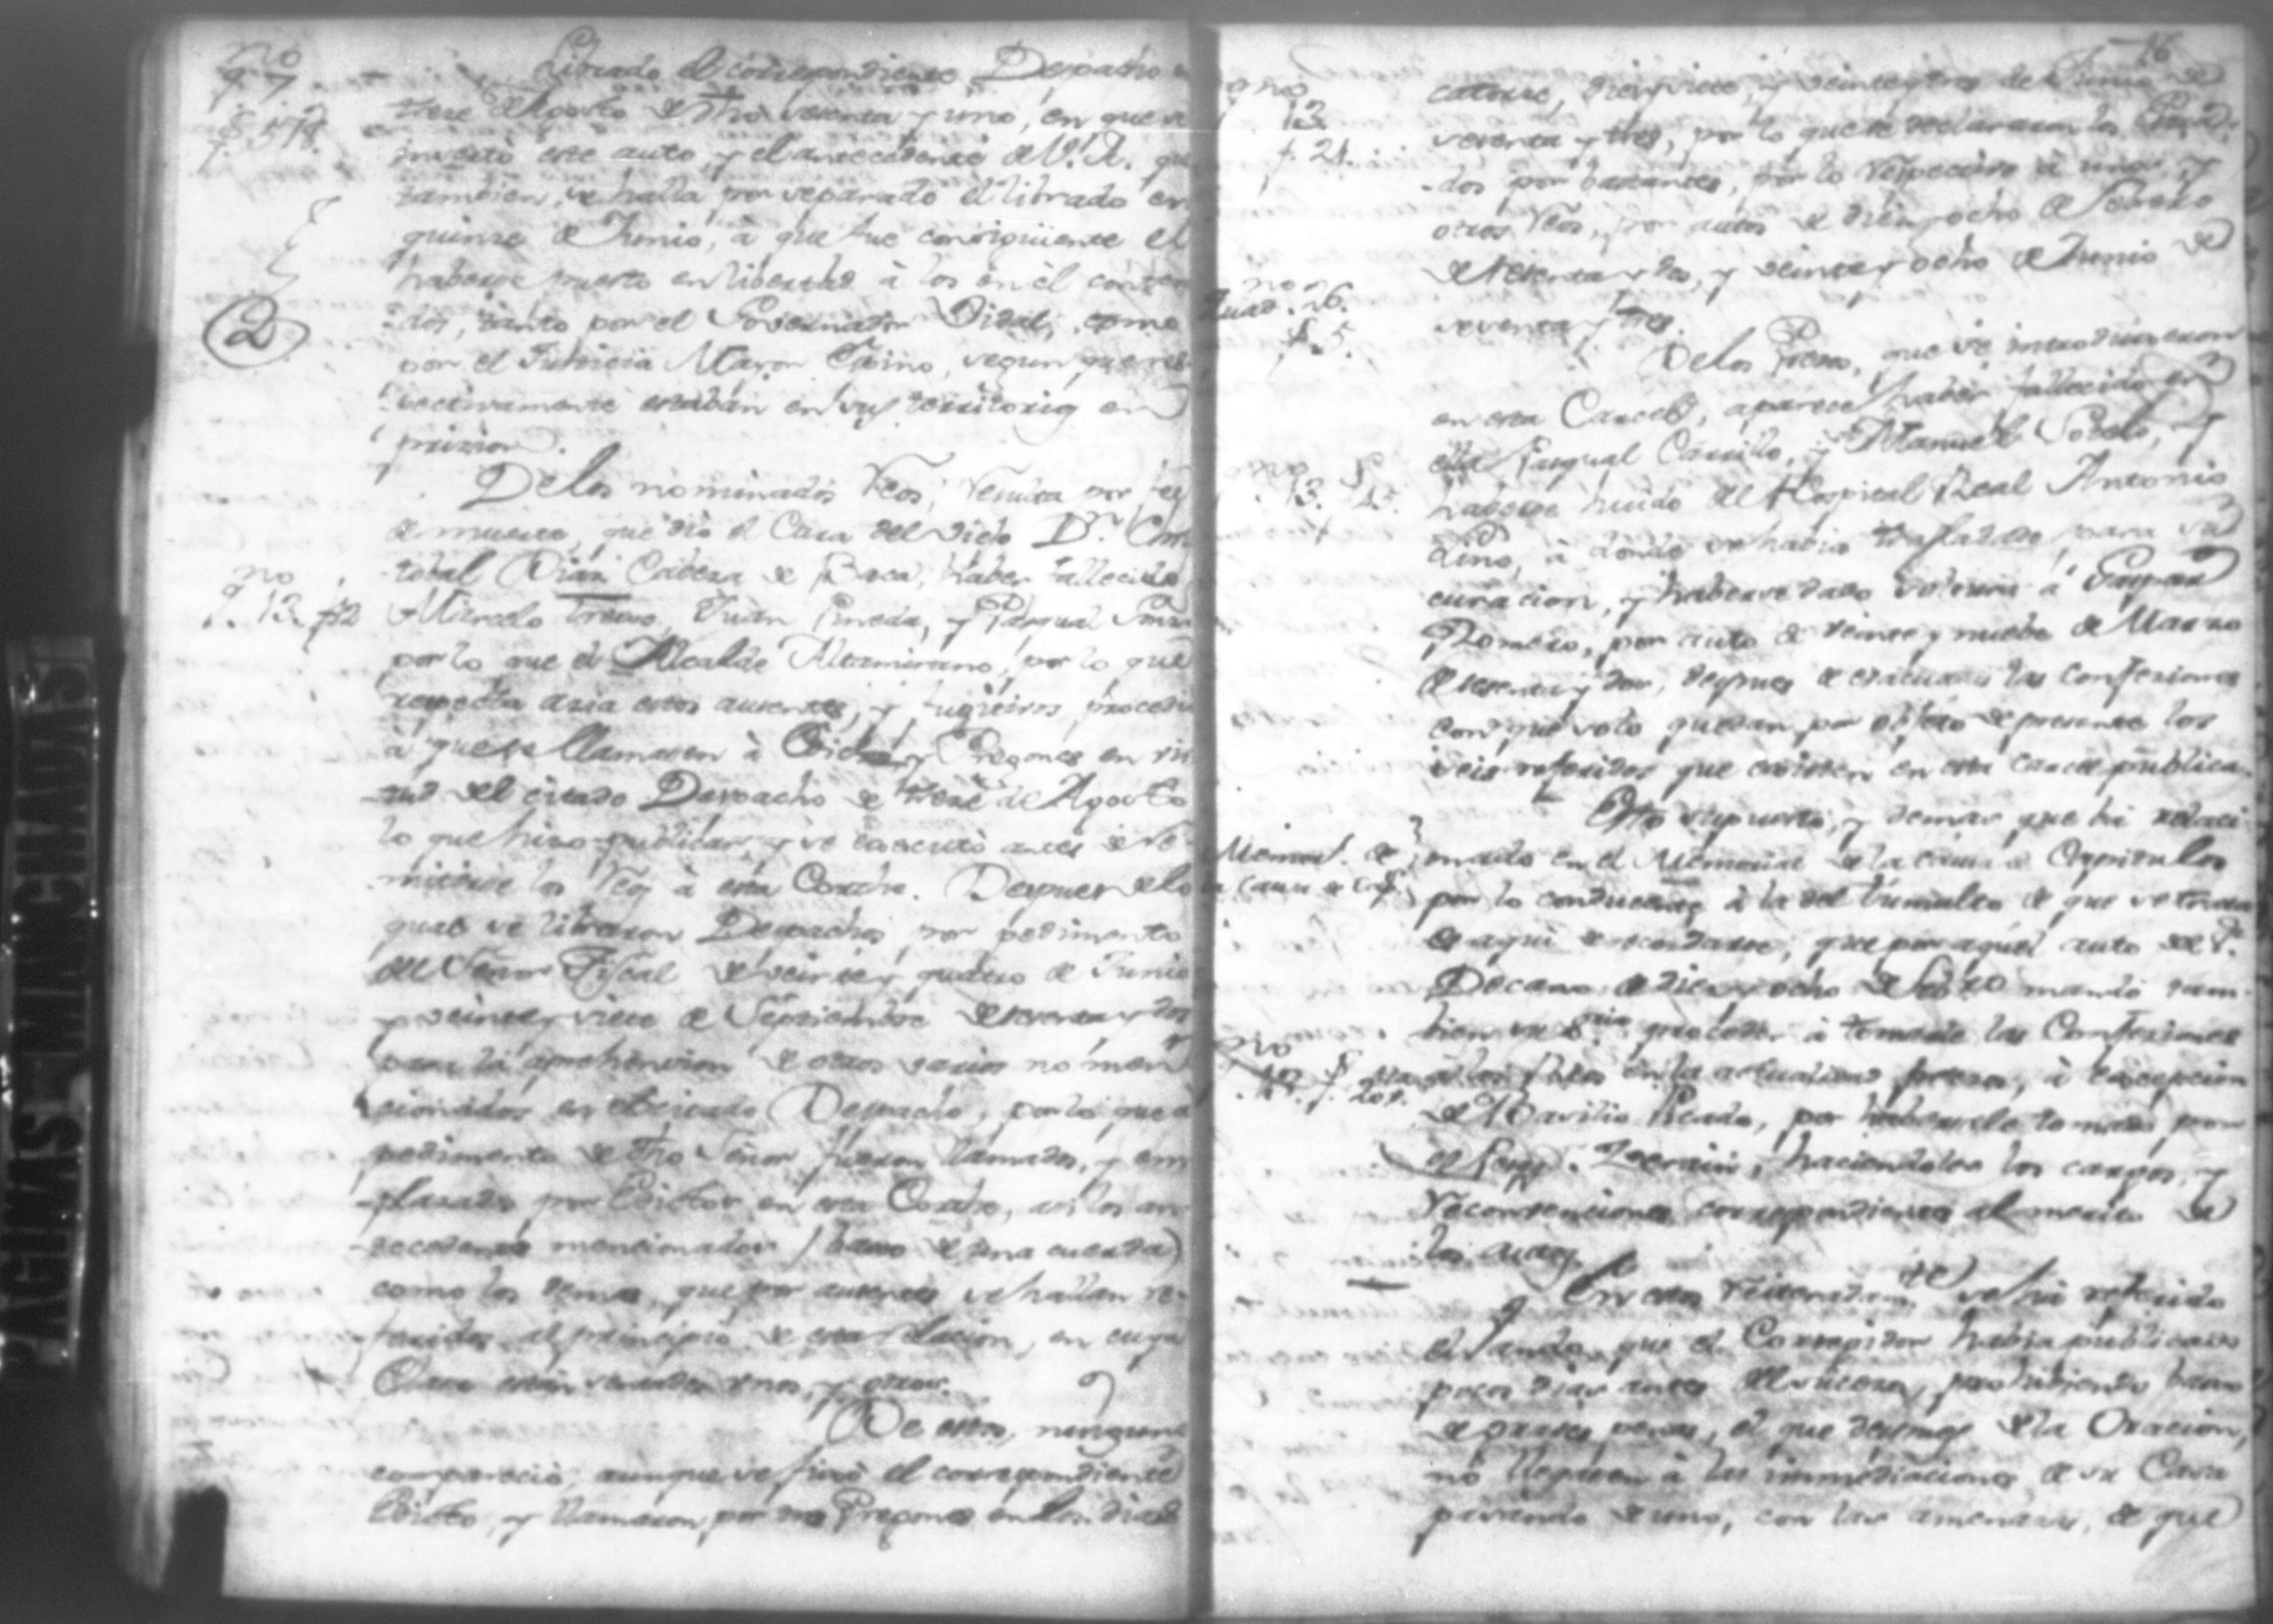 no
9. 7
f. 578.
Librado el correspondiente Despacho
trese de Agosto de dho sesenta y uno, en que se
insertó este auto, y el antecedente de V. A. que
tambien, se halla por separado el librado en
quinze de Junio, à que fue consiguiente el
haverse puesto en libertad à los en èl conten
2
dos, tanto por el Governador Vidal, como
por el Justicia Mayor Espino, segun que res
pectivamente estaban en sus territorios en
prision.
De los nominados Reos, resulta por fee
de muerte, que dio el Cura del Viejo Dn. Chris
no
9. 13. f 2
tobal Dias Cabeza de Baca, haber fallecido
Marcelo Treuio, Juan Pineda, y Pasqual
por lo que el Alcalde Altamirano, por lo que
respecta azia estos ausentes, y fugitivos, procedió
à que se llamasen à Edictos y Pregones en vir
tud del citado Despacho de trese de Agosto
lo que hizo publicar, y se executò antes de re
mitirse los Reos à esta Corte. Despues de lo
qual se libraron Despachos por pedimento
del Señor Fiscal de veinte y quatro de Junio
y veinte y siete de Septiembre de sesenta y dos
para la aprehension de otros varios no men
cionados en el citado Despacho, por lo que à
pedimento de dho Señor fueron llamados, y em
plazados por Edictos en esta Corte, asi los an
tecedentes mencionados (baxo de una cuerda)
como los demas, que por ausentes se hallan re
feridos al principio de esta relacion, en cuya
Clase estan sentados unos, y otros.
De estos, ninguno
compareciò, aunque se fixò el correspondiente
Edicto, y llamaron por tres Pregones en los dias
16
catorse, diez y siete, y veinte y tres de Junio de
13.
f. 21.
sesenta y tres, por lo que se declararon los
dos por bastantes, por lo respectivo à unos, y
otros Reos, por autos de diez y ocho de Febrero
de sesenta y dos, y veinte y ocho de Junio de
no
Quad. 26.
f. 5.
sesenta y tres.
De los Presos, que se introduxeron
en esta Carcel, aparece haber fallecido en
ella Pasqual Carrillo, y Manuel Sotelo, y
no
13. f. 45.
haberse huido del Hospital Real Antonio
Lino, à donde se habia trasladado para su
curacion, y haberse dado soltura à Gaspar
Romero, por auto de veinte y nuebe de Marzo
de sesenta y dos, despues de evacuadas las confesiones
con que solo quedan por objeto de presente los
seis referidos que existen en esta carcel publica.
Esto supuesto, y demas que hè relaci
Memorl. de
la Causa de Capl.
onado en el Memorial de la causa de Capitulos
por lo conducente à la del tumulto de que se trata
es aqui de recordarse, que por aquel auto del Sr.
Decano de diez y ocho de Febro mandò tam
bien su Sria proceder à tomarles las Confesiones
no
13. f. 209.
à los Reos en la actualidad presos, à excepcion
de Basilio Picado, por haberselo tomado por
el Liquidor. Zerrain, haciendoles los cargos, y
reconvenciones correspondientes al merito de
los autos.
En estos reiteradamte se hà referido
el vando, que el Corregidor habia publicado
pocos dias antes del suceso, prohibiendo baxo
de graves penas, el que despues de la Oracion,
no llegasen à las inmediaciones de su Casa
pasando de uno, con las amenazas, de que